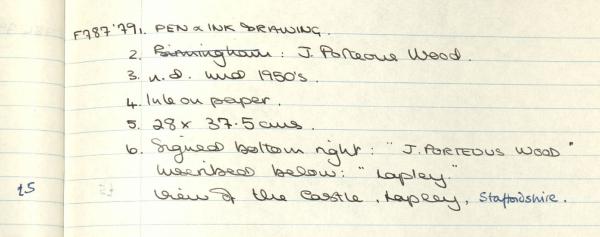 F787'79 1. PEN & INK DRAWING.
2. Birmingham: J. Porteous Wood.
3. n.d. mid 1950's.
4. Ink on paper.
5. 28 x 37.5 cms.
6. Signed bottom right: "J. PORTEOUS WOOD"
Inscribed below: "Lapley."
£5 View of the Castle, Lapley, Staffordshire.